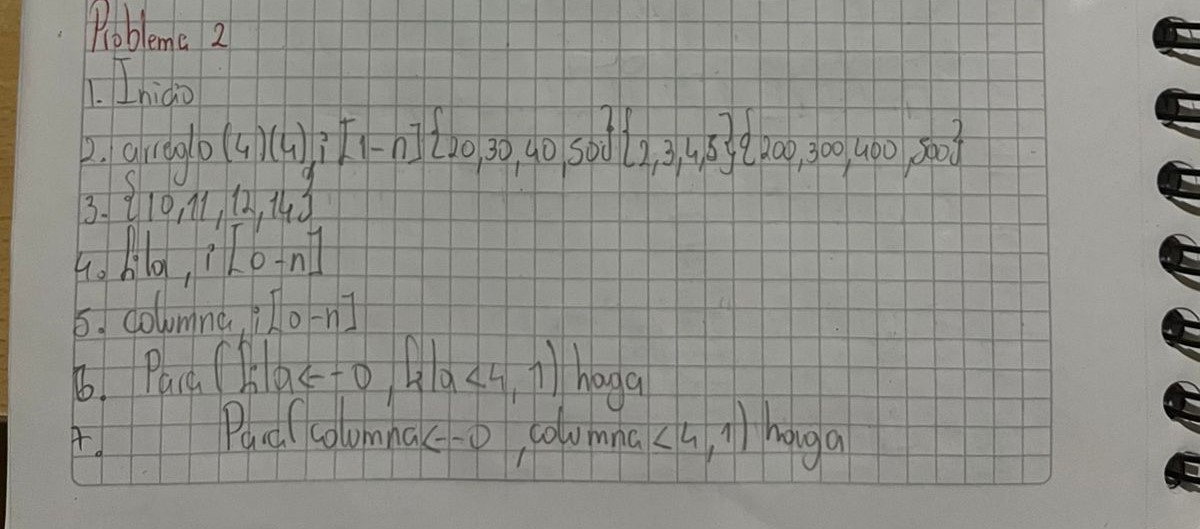 Problema 2
1. Inicio
2. arreglo(4)(4), i [1-n]{20,30,40,50}{2,3,4,5}{200,300,400,500}
3. {10,11,12,14}
4. fila, i [0-n]
5. columna, i [0-n]
6. Para (fila<--0, fila<4, 1) haga
7. Para(columna<--0, columna<4, 1) haga